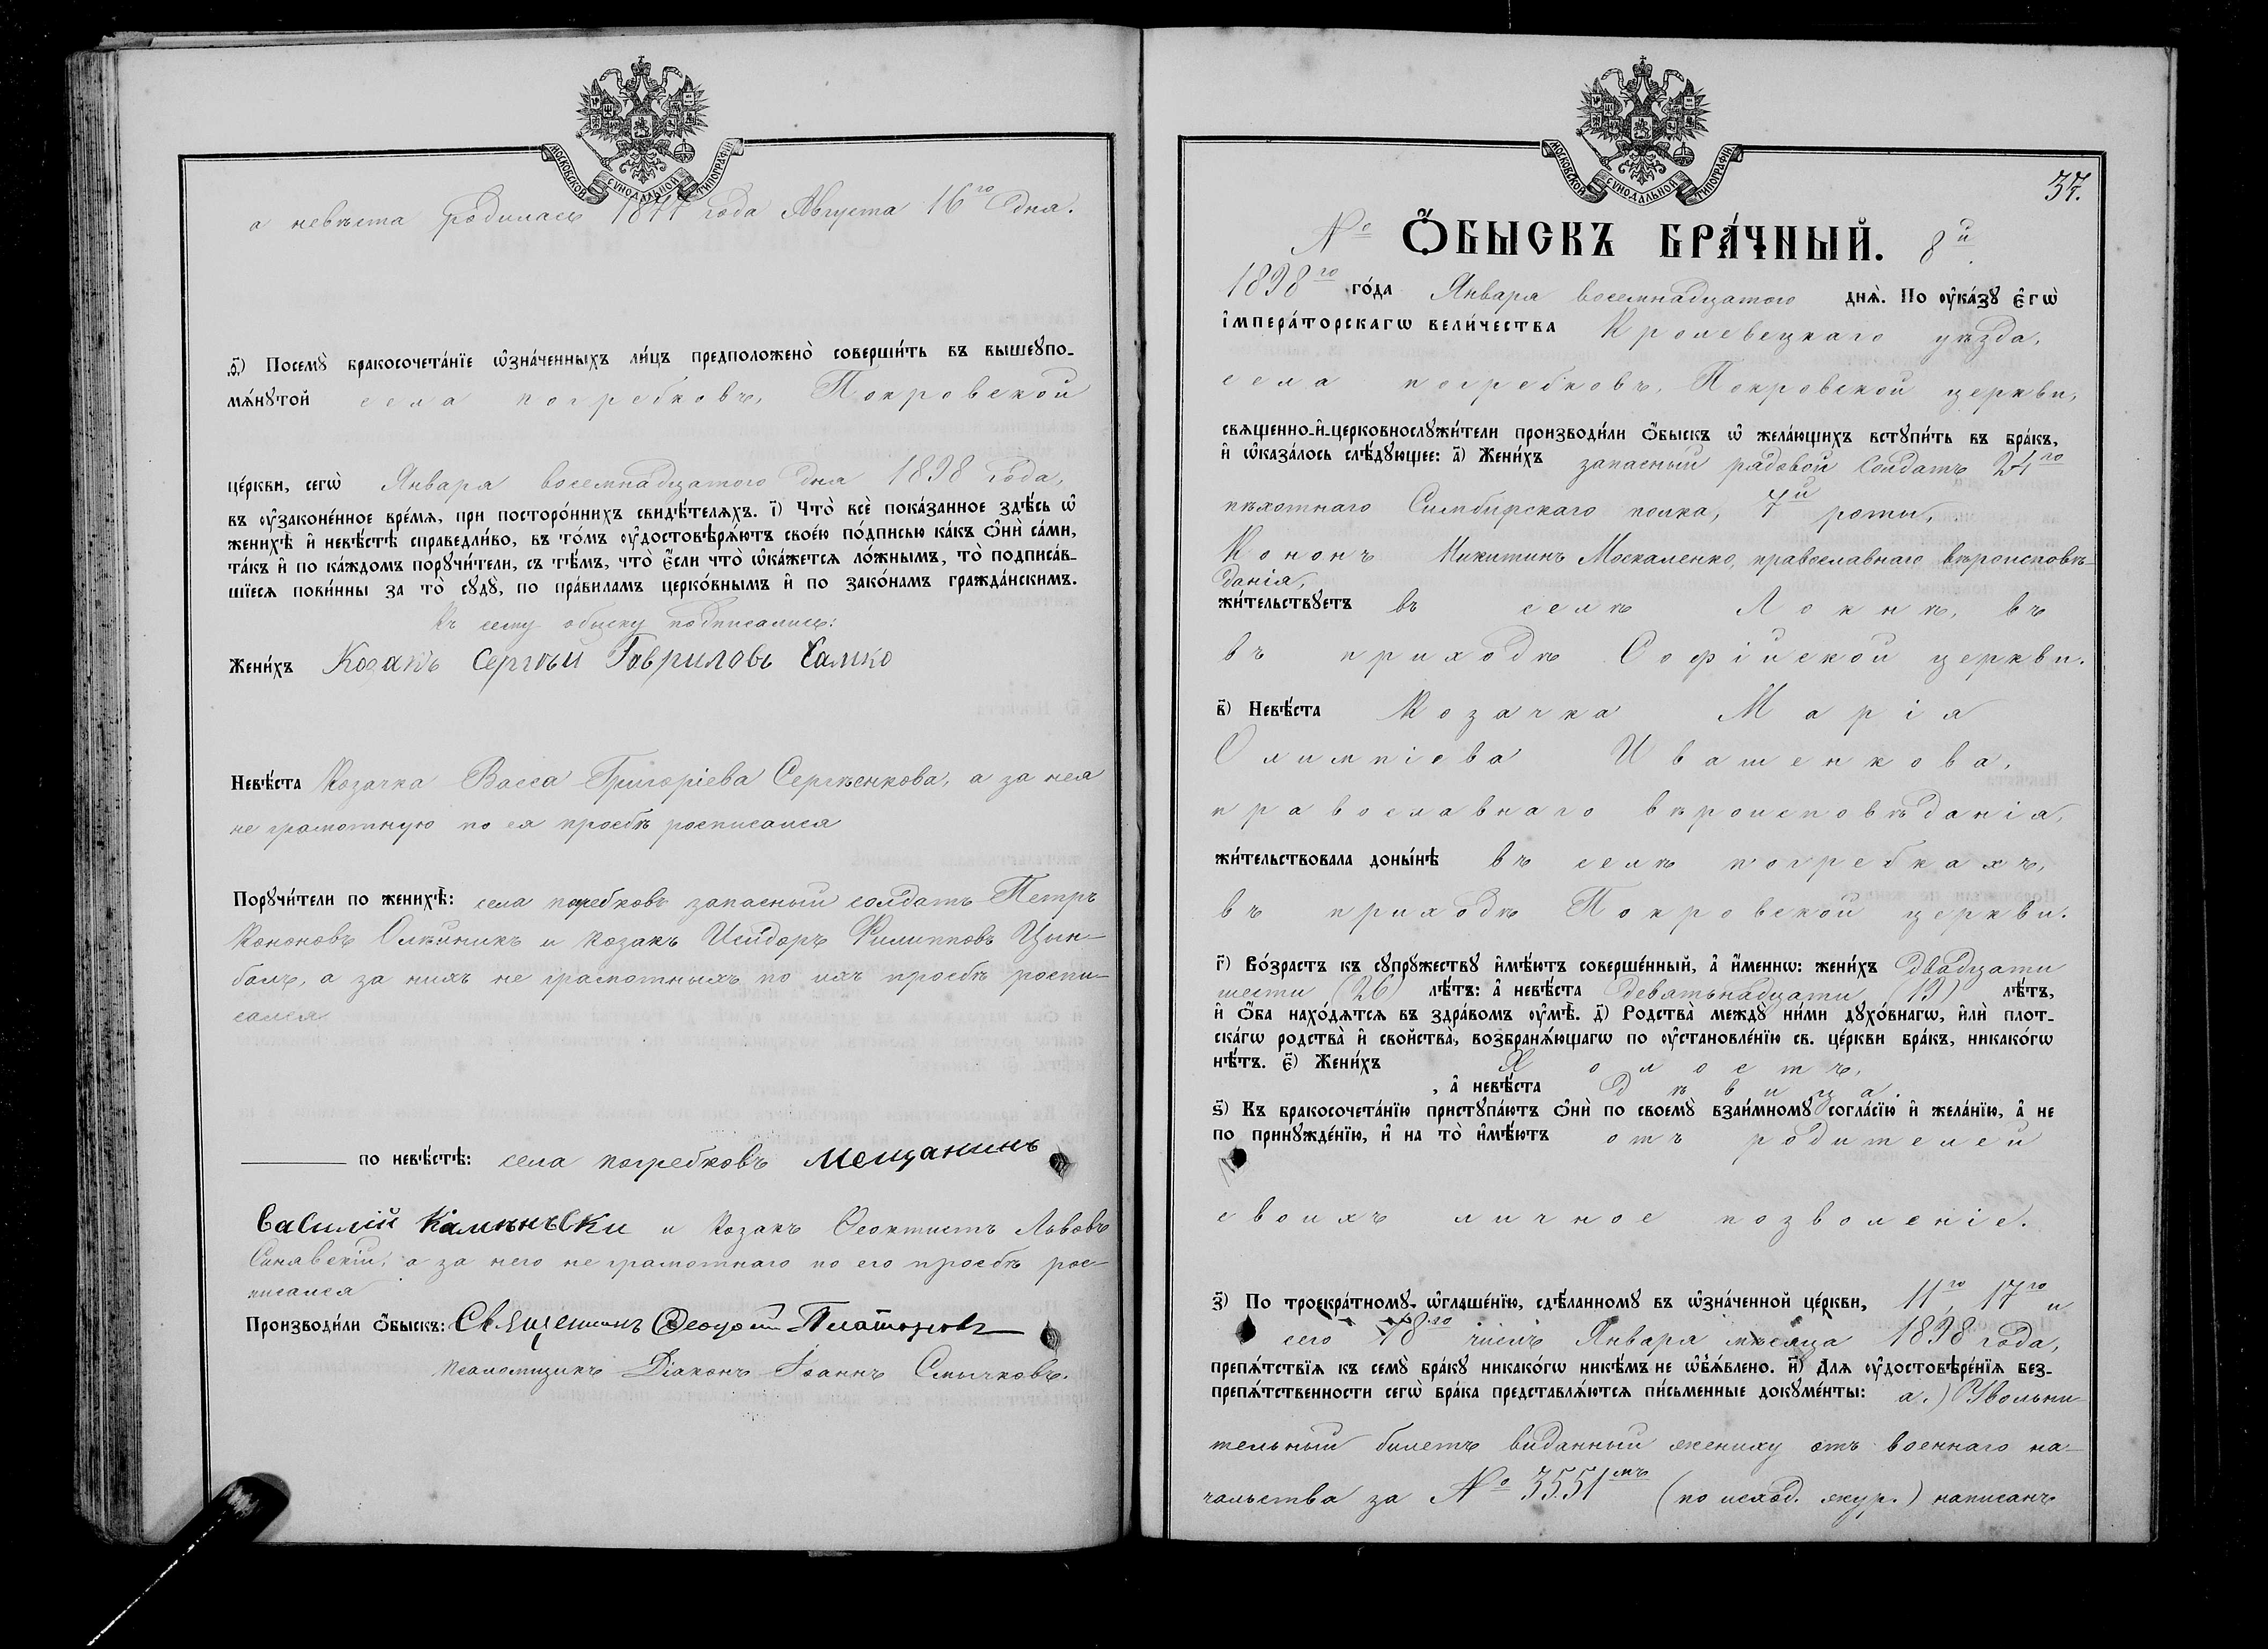 МОСКОВСКОЙ СѴНОДАЛЬНОЙ ТИПОГРАФІИ
а невѣста родилась 1877 года Августа 16го дня.
Ѳ҃) Посемꙋ̀ бракосочета́нїе ѡ҆зна́ченныхъ ли́цъ предположено̀ соверши́ть въ вышеꙋпо-
мѧ́нꙋтой села погребковъ, Покровской
це́ркви, сегѡ̀ Января восемнадцатого дня 1898 года,
въ ᲂу҆законе́нное вре́мѧ, при посторо́ннихъ свидѣ́телѧхъ. і҃) Что̀ всѐ пока́занное здѣ́сь ѡ҆
женихѣ̀ и҆ невѣ́стѣ справедли́во, въ то́мъ ᲂу҆достовѣрѧ́ютъ свое́ю по́дписью ка́къ ѻ҆нѝ са́ми,
та́къ и҆ по ка́ждомъ порꙋчи́тели, съ тѣ́мъ, что̀ є҆́сли что̀ ѡ҆ка́жетсѧ ло́жнымъ, то̀ подписа́в-
шїесѧ пови́нны за то̀ сꙋдꙋ̀, по пра́виламъ церко́внымъ и҆ по зако́намъ гражда́нскимъ.
Къ сему обыску подписались:
Жени́хъ Козакъ Сергѣй Гавриловъ Самко
Невѣ́ста Козачка Васса Григоріева Сергѣенкова, а за нея
не грамотную по ея просьбѣ росписался
Порꙋчи́тели по женихѣ̀: села погребковъ запасный солдатъ Петръ
Кононовъ Олѣйникъ и козакъ Исидоръ Филипповъ Цын-
балъ, а за нихъ не грамотныхъ по ихъ просьбѣ роспи-
сался
по невѣ́стѣ: села погребковъ мещанинъ
Василій Каминьски и козакъ Ѳеоктистъ Львовъ
Синявскій, а за него не грамотнаго по его просьбѣ рос-
писался
Производи́ли ѻ҆́быскъ: Священникъ Платоновъ
псаломщикъ Діаконъ Іоаннъ Смычковъ.
МОСКОВСКОЙ СѴНОДАЛЬНОЙ ТИПОГРАФІИ
37.
№ Ѻ҆́БЫСКЪ БРА́ЧНЫЙ. 8й
1898го го́да Января восемнадцатого днѧ̀. По ᲂу҆ка́зꙋ є҆гѡ̀
і҆мпера́торскагѡ вели́чества Кролевецкаго уѣзда,
села погребковъ, Покровской церкви,
свѧщенно-и҆-церковнослꙋжи́тели производи́ли ѻ҆́быскъ ѡ҆ жела́ющихъ встꙋпи́ть въ бра́къ,
и҆ ѡ҆каза́лось слѣ́дꙋющее: а҃) Жени́хъ запасный рядовой солдатъ 24го
пѣхотнаго Симбирскаго полка, 7й роты,
Кононъ Никитинъ Москаленко, православнаго вѣроисповѣ-
данія,
жи́тельствꙋетъ въ селѣ Локнѣ, въ
въ приходѣ Софійской церкви.
в҃) Невѣ́ста Козачка Марія
Олимпіева Ивашенкова,
православнаго вѣроисповѣданія,
жи́тельствовала доны́нѣ въ селѣ погребкахъ,
въ приходѣ Покровской церкви.
г҃) Во́зрастъ къ сꙋпрꙋ́жествꙋ и҆мѣ́ютъ соверше́нный, а҆ и҆́меннѡ: жени́хъ двадцати
шести (26) лѣ́тъ: а҆ невѣ́ста девятьнадцати (19) лѣ́тъ,
и҆ ѻ҆́ба нахо́дѧтсѧ въ здра́вомъ ᲂу҆мѣ̀. д҃) Родства̀ междꙋ̀ ни́ми дꙋхо́внагѡ, и҆лѝ плот-
ска́гѡ родства̀ и҆ свойства̀, возбранѧ́ющагѡ по ᲂу҆становле́нїю св. це́ркви бра́къ, никако́гѡ
нѣ́тъ. є҃) Жени́хъ Холостъ,
, а҆ невѣ́ста дѣвица.
ѕ҃) Къ бракосочета́нїю пристꙋпа́ютъ ѻ҆нѝ по своемꙋ̀ взаи́мномꙋ согла́сїю и҆ жела́нїю, а҆ не
по принꙋжде́нїю, и҆ на то̀ и҆мѣ́ютъ отъ родителей
своихъ личное позволеніе.
з҃) По троекра́тномꙋ ѡ҆глаше́нїю, сдѣ́ланномꙋ въ ѡ҆зна́ченной це́ркви, 11го, 17го и
сего 18го числъ Января мѣсяца 1898 года,
препѧ́тствїѧ къ семꙋ̀ бра́кꙋ никако́гѡ никѣ́мъ не ѡ҆бъѧ́влено. и҃) Длѧ ᲂу҆достовѣре́нїѧ без-
препѧ́тственности сегѡ̀ бра́ка представлѧ́ютсѧ пи́сьменные докꙋме́нты: а.) Увольни-
тельный билетъ виданный жениху отъ военнаго на-
чальства за № 3551мъ (по исход. жур.) написанъ